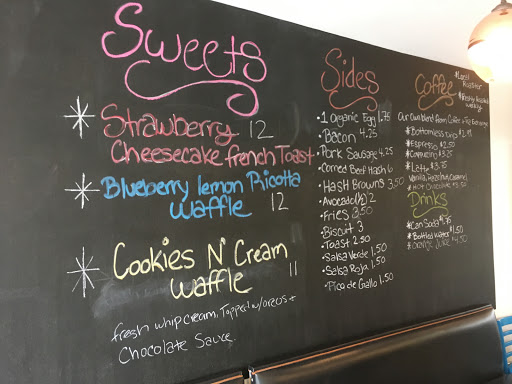 Sweets
* Strawberry 12
Cheesecake french Toast
* Blueberry lemon Ricotta
Waffle 12
* Cookies N' Cream
Waffle 11
fresh whip cream, Topped w/oreos +
Chocolate Sauce.
Sides
• 1 Organic Egg 1.75
• Bacon 4.25
• Pork Sausage 4.25
• Corned Beef Hash 6
• Hash Browns 3.50
• Avocado 2
• Fries 3.50
• Biscuit 3
• Toast 2.50
• Salsa Verde 1.50
• Salsa Roja 1.50
• Pico de Gallo 1.50
Coffee
* Local
Roaster
* Freshly Roasted
weekly
Our own blend from Coffee & Tea Exchange
* Bottomless $2.95
* Espresso $2.50
* Cappuccino $3.75
* Latte $3.75
Vanilla, Hazelnut, Caramel
* Hot Chocolate $3.50
Drinks
* Can Soda $1.75
* Bottled Water $1.50
* Orange Juice $4.50